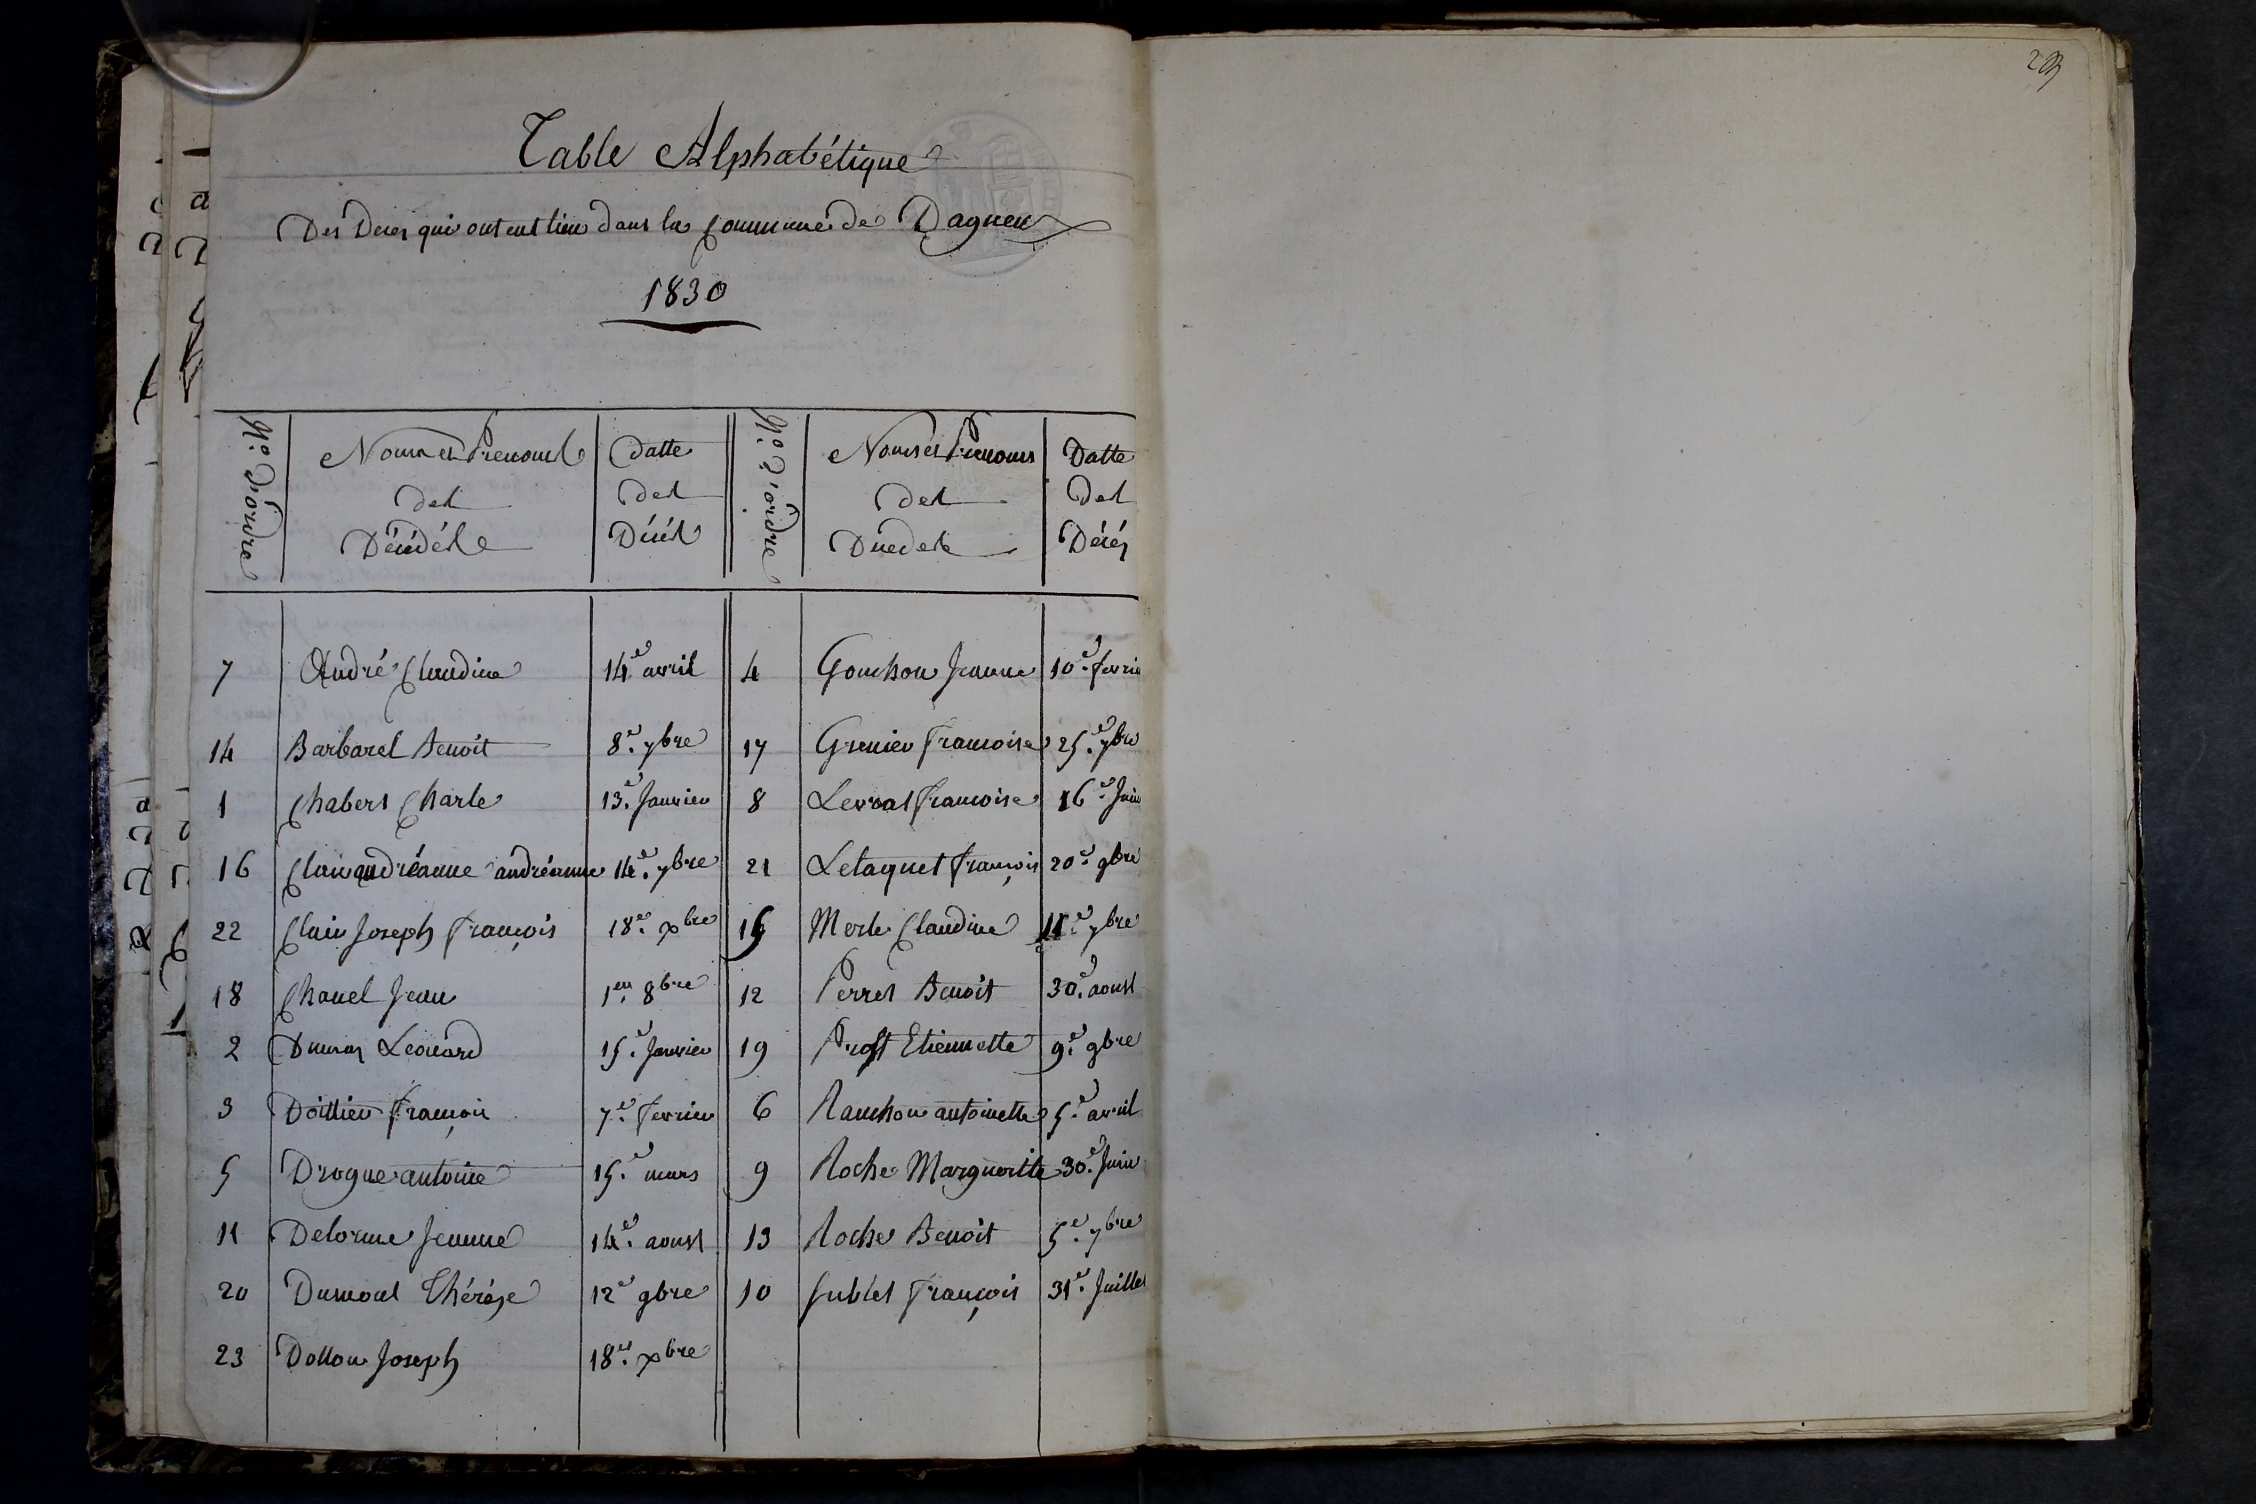 29
Table Alphabétique
Des Decés qui ont eut lieu dans la Commune de Dagneux
1830
N.o D'ordre
Noms et Prenoms
des
Décédés
Datte
des
Décés
N.o D'ordre
Noms et Prenoms
des
Décedes
Datte
des
Décés
7 André Claudine 14.e avril
14 Barbarel Benoit 8.e 7bre
1 Chabert Charle 13.e Janvier
16 Clair andréanne andréanne 14.e 7bre
22 Clair Joseph François 18.e xbre
18 Chanel Jean 1.er 8bre
2 Dumas Léonard 15.e Janvier
3 Doillier François 7.e fevrier
5 Drogue antoine 15.e mars
11 Delorme Jeanne 14.e aoust
20 Dumont Thérèse 12.e 9bre
23 Dollon Joseph 18.e xbre
4 Gonchon Jeanne 10.e fevrie
17 Grenier francoise 25.e 7bre
8 Levrat francoise 16.e Juin
21 Letaquet françois 20.e 9bre
15 Merle Claudine 11.e 7bre
12 Perret Benoit 30.e aoust
19 Prost Etiennette 9.e 9bre
6 Ranchon antoinette 5.e avril
9 Roche Marguerite 30.e Juin
13 Roche Benoit 5.e 7bre
10 Sublet François 31.e Juillet